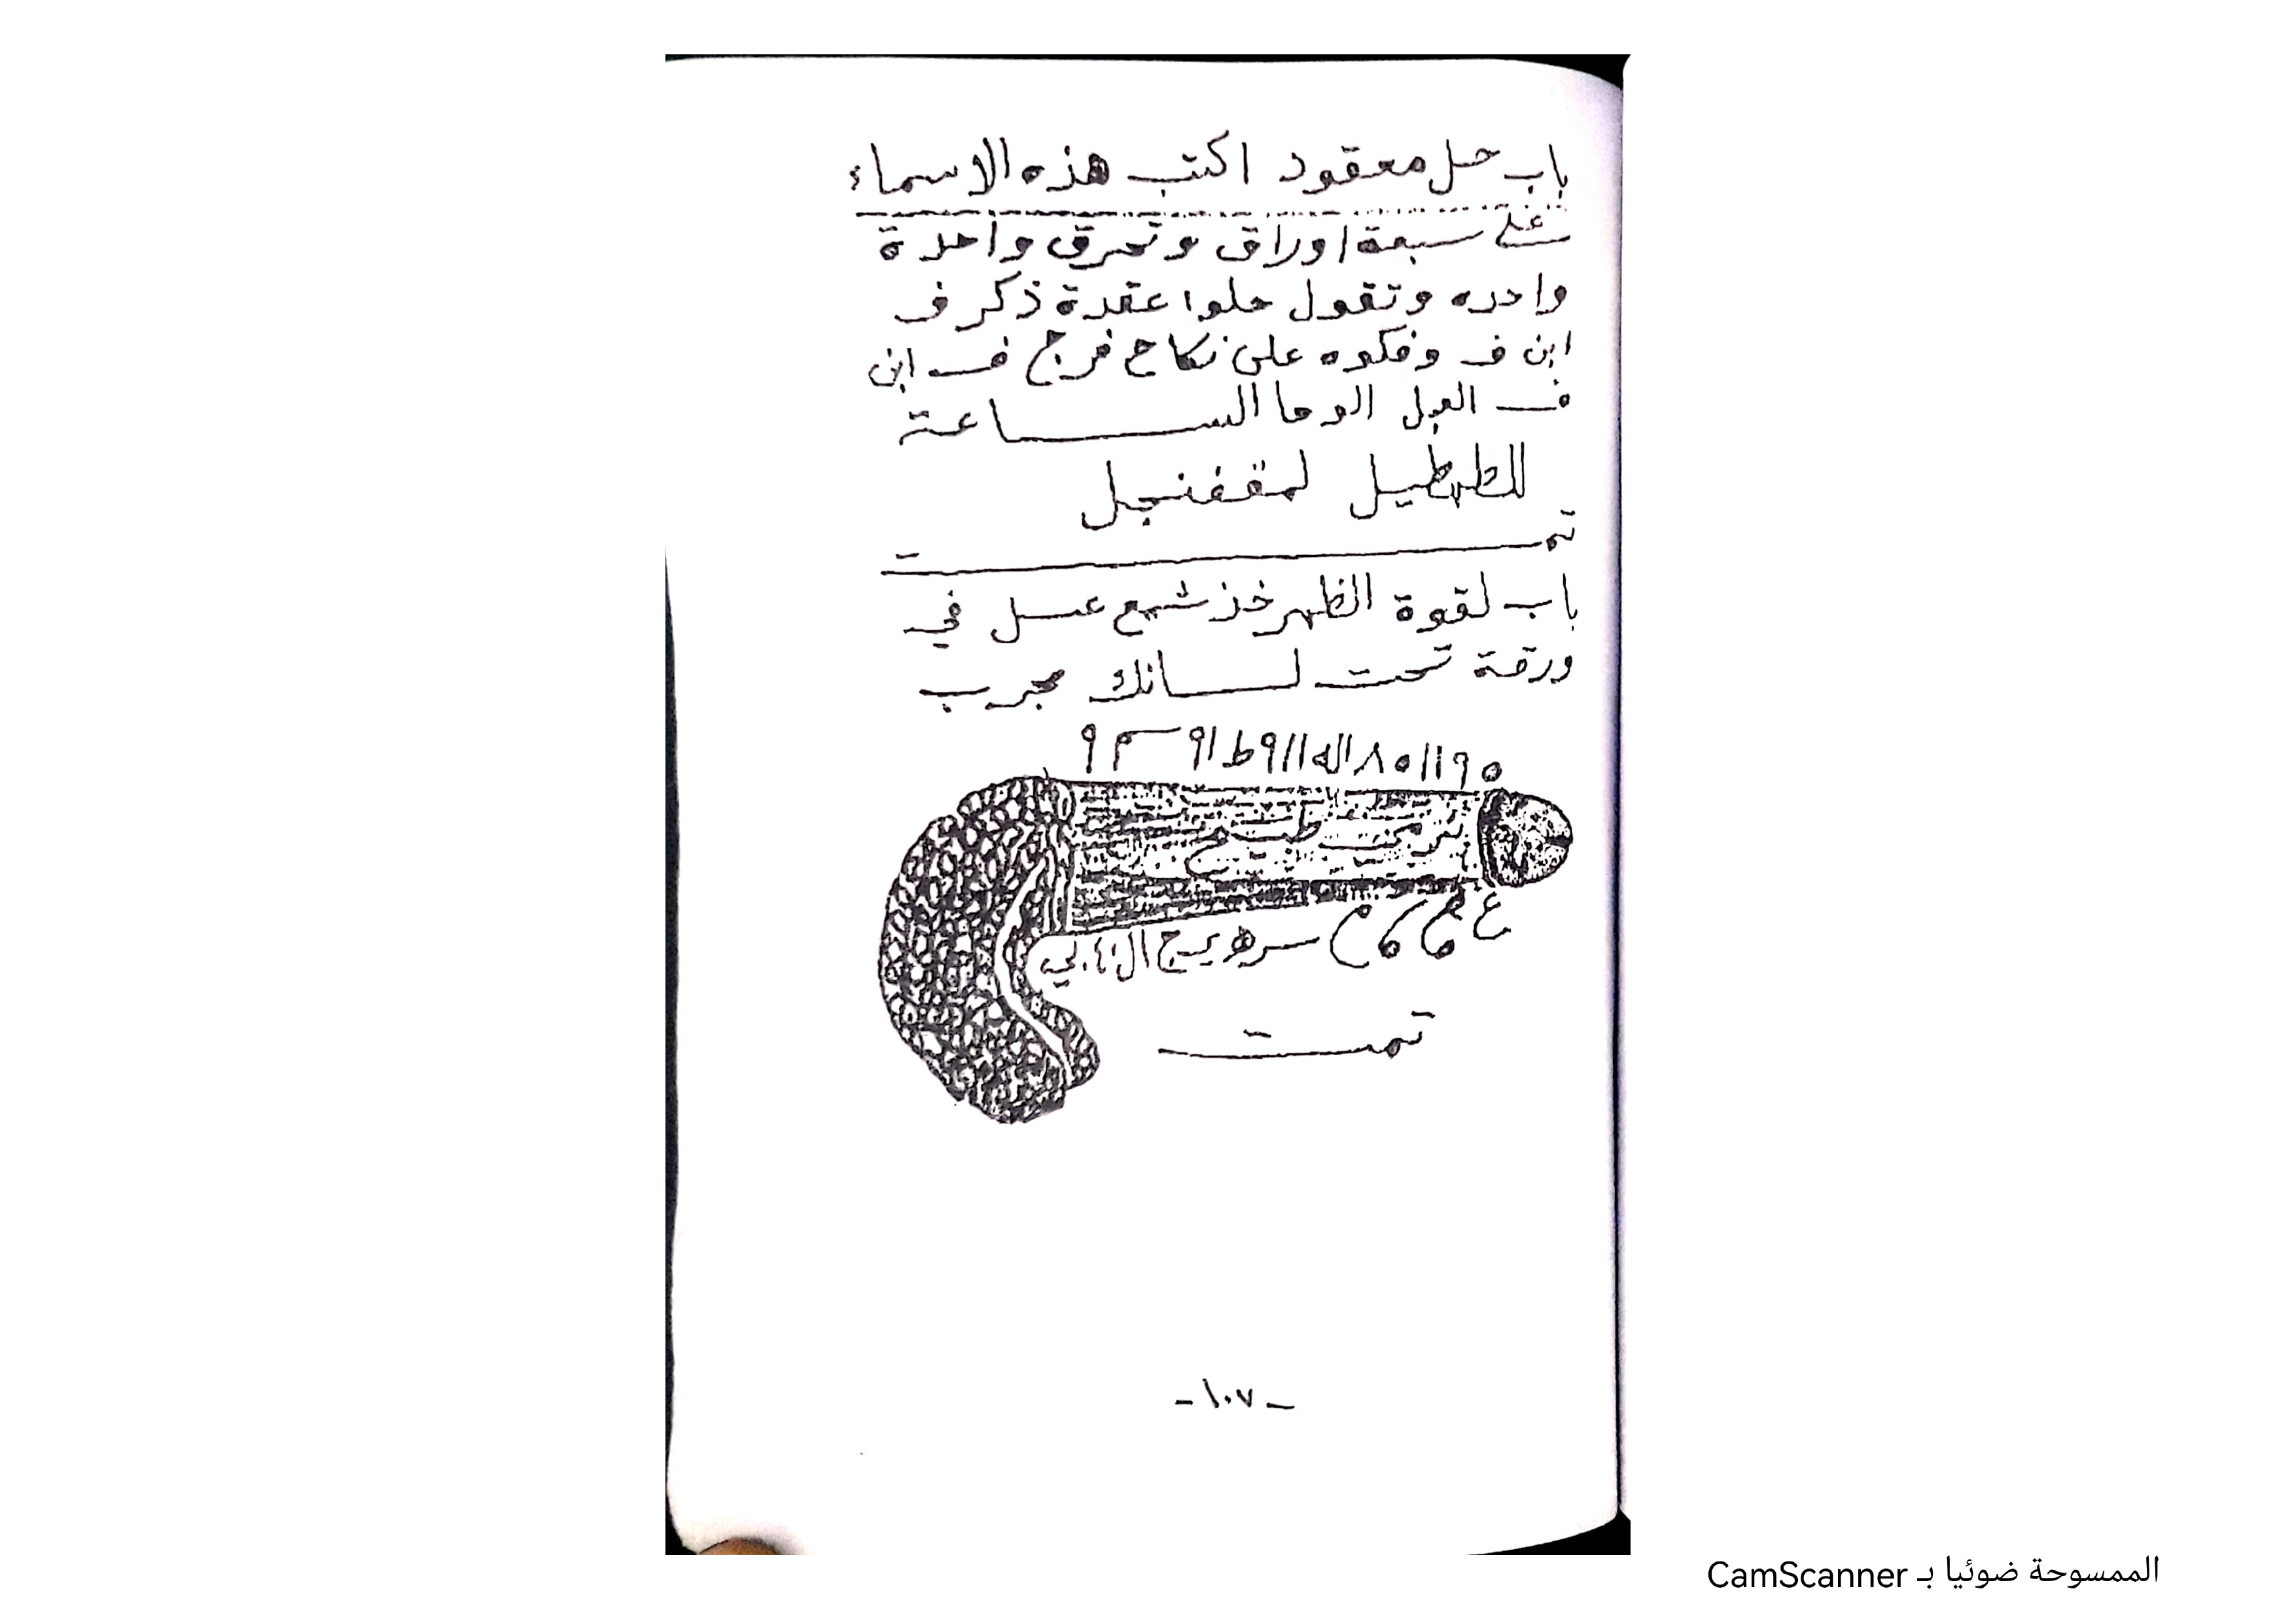 باب حل معقود اكتب هذه الاسماء
على سبعة اوراق وتحرق واحدة
واحده وتقول حلوا عقدة ذكر ف
ابن ف وفكوه على نكاح فرج ف ابن
ف العجل الوحا الساعة
للطهطيل لمقفنجل
تمت
باب لقوة الظهر خذ شمع عسل في
ورقة تحت لسانك مجرب
تمت
-١٠٧-
الممسوحة ضوئيا بـ CamScanner